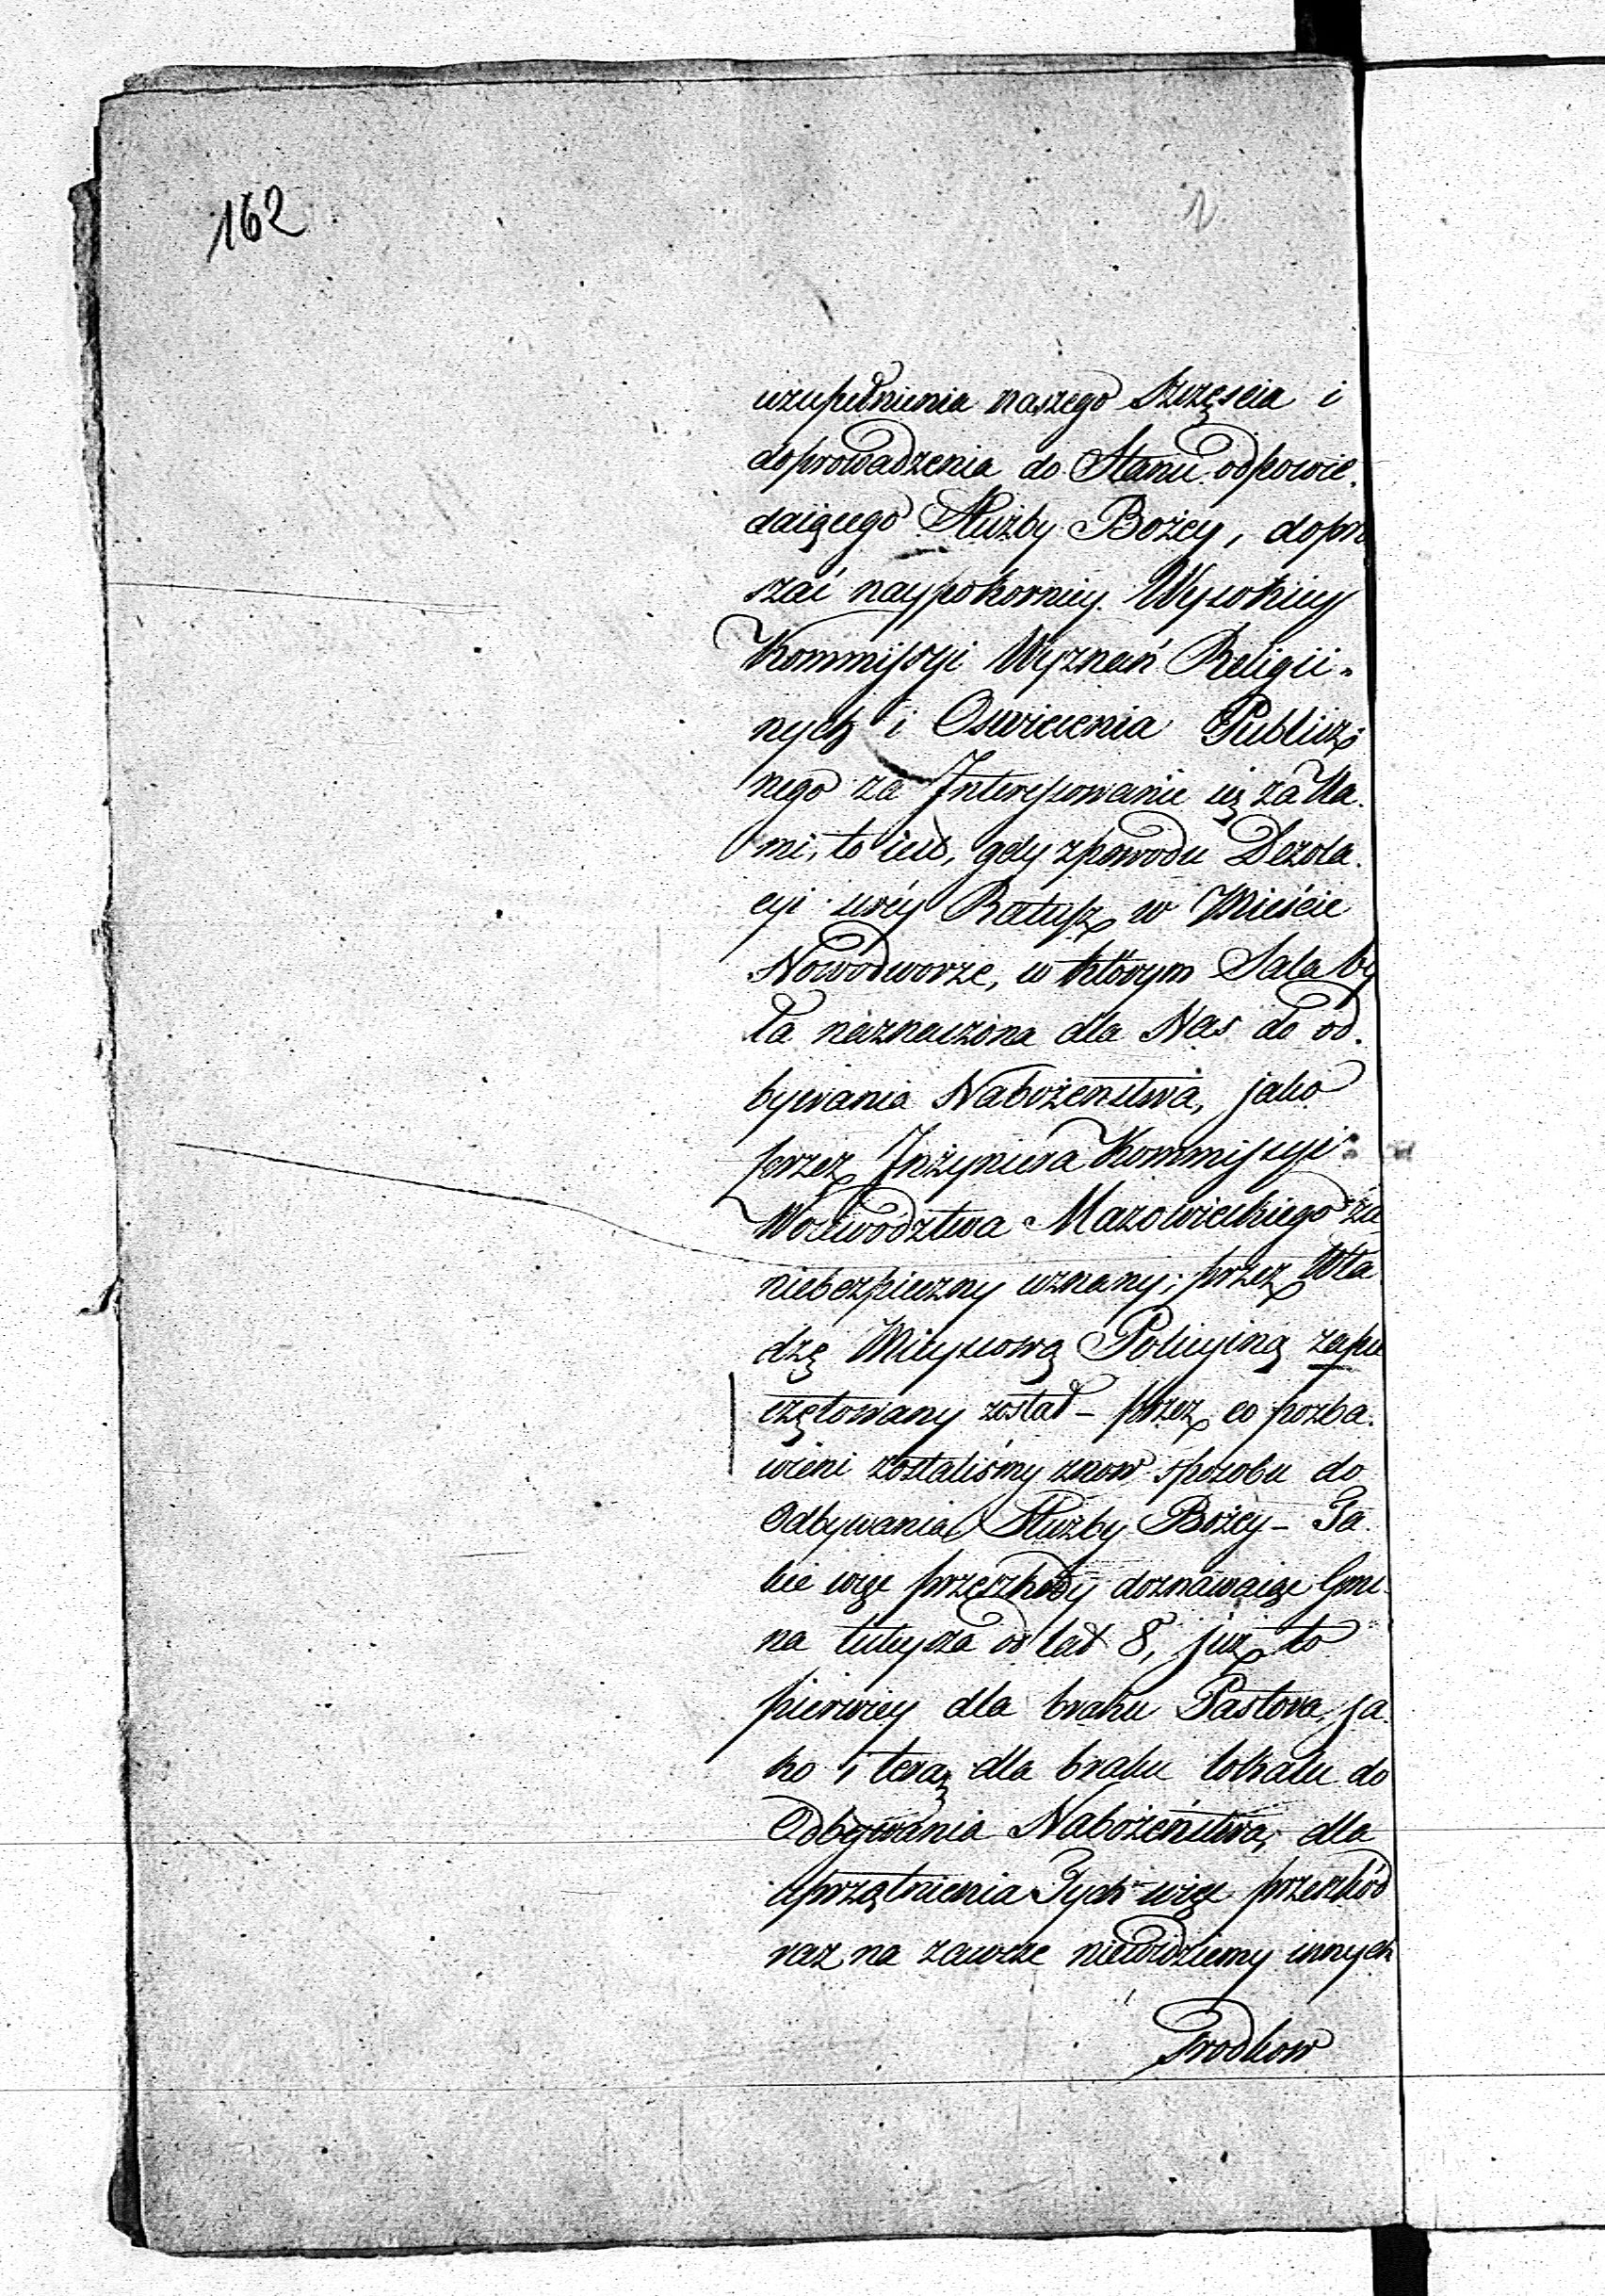 162
uzupełnienia naszego Szczęscia i
doprowadzenia do Stanu odpowie.
daiącego Służby Bożey, dopra
szać naypokorniey Wysokiey
Kommissyi Wyznań Religii-
nych i Oswiecenia Publicz-
nego za Interessowanie się za Na.
mi, to iest, gdy z powodu Dezola.
cyi swéy Ratusz w Mieście
Nowodworze, w którym Sala by
ła naznaczona dla Nas do od.
bywania Nabożenstwa, jako
przez Inżyniera Kommissyi
Woiewództwa Mazowieckiego za
niebezpieczny uznany; przez Wła
dzę Mieyscową Policyiną zapie
czętowany został – przez co pozba.
wieni zostaliśmy znow sposobu do
Odbywania Służby Bożey – Ta.
kie więc przeszkody doznawaiąc Gmi-
na tuteysza od lat 8, już to
pierwiey dla braku Pastora, ja.
ko i teraz dla braku lokalu do
Odbywania Nabożeństwa, dla
uprzątnienia Tych więc przeszkód
raz na zawsze niewidziemy innych
Srodkow